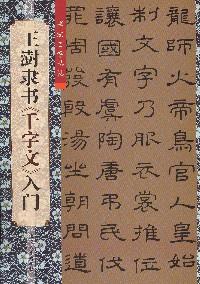 龍師火帝鳥官人皇始
制文字乃服衣裳推位
讓國有虞陶唐弔民伐
罪周發殷湯坐朝問道
王澍隶书《千字文》入门